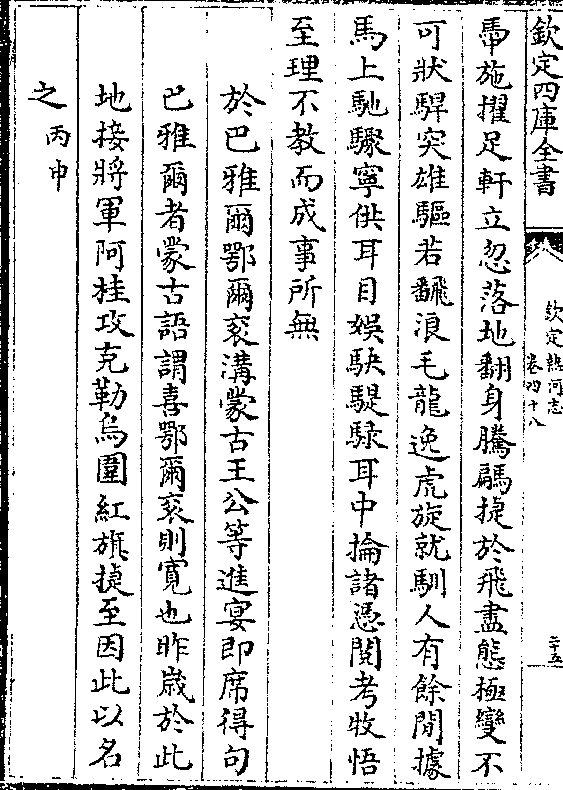 欽定四庫全書
欽定熱河志
卷四十八
二十五
馵施擢足軒立忽落地翻身騰驣捷於飛盡態極變不
可狀騂突雄驅若翻浪毛龍逸虎旋就馴人有餘閒據
馬上馳驟寧供耳目娛駃騠騄耳中掄諸憑閱考牧悟
至理不教而成事所無
於巴雅爾鄂爾衮溝蒙古王公等進宴即席得句
巴雅爾者蒙古語謂喜鄂爾衮則寬也昨嵗於此
地接將軍阿桂攻克勒烏圍紅旗捷至因此以名
之丙申